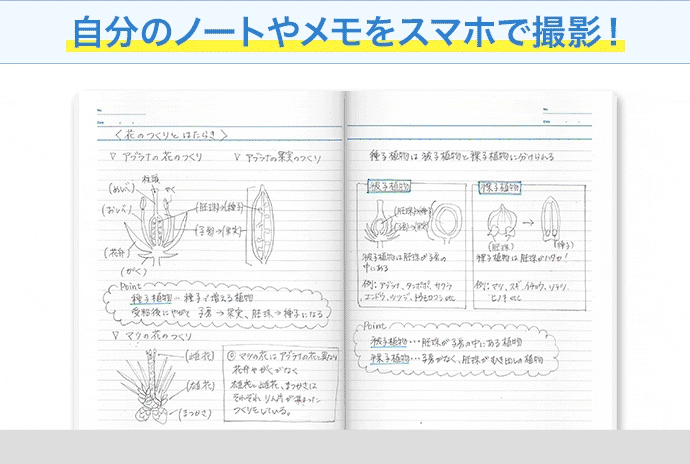 自分のノートやメモをスマホで撮影!
No.
Date
No.
Date
〈花のつくりとはたらき〉
▽ アブラナの花のつくり
▽ アブラナの果実のつくり
柱頭
(めしべ)
やく
(おしべ)
(胚珠)→(種子)
(子房)→(果実)
(花弁)
(がく)
Point
種子植物…種子で増える植物
受粉後にやがて 子房→果実、胚珠→種子になる
▽ マツの花のつくり
(雌花)
(雄花)
(まつかさ)
マツの花はアブラナの花と異なり
花弁やがくがなく
雄花と雌花、まつかさは
それぞれりん片が集まった
つくりをしている。
種子植物は被子植物と裸子植物に分けられる
被子植物
(胚珠)→(種子)
(子房)→(果実)
被子植物は胚珠が子房の
中にある
例:アブラナ、タンポポ、サクラ
エンドウ、ツツジ、トウモロコシ etc
裸子植物
→
(胚珠)
(種子)
裸子植物は胚珠がハダカ!
例:マツ、スギ、イチョウ、ソテツ、
ヒノキ etc
Point
被子植物…胚珠が子房の中にある植物
裸子植物…子房がなく、胚珠がむき出しの植物